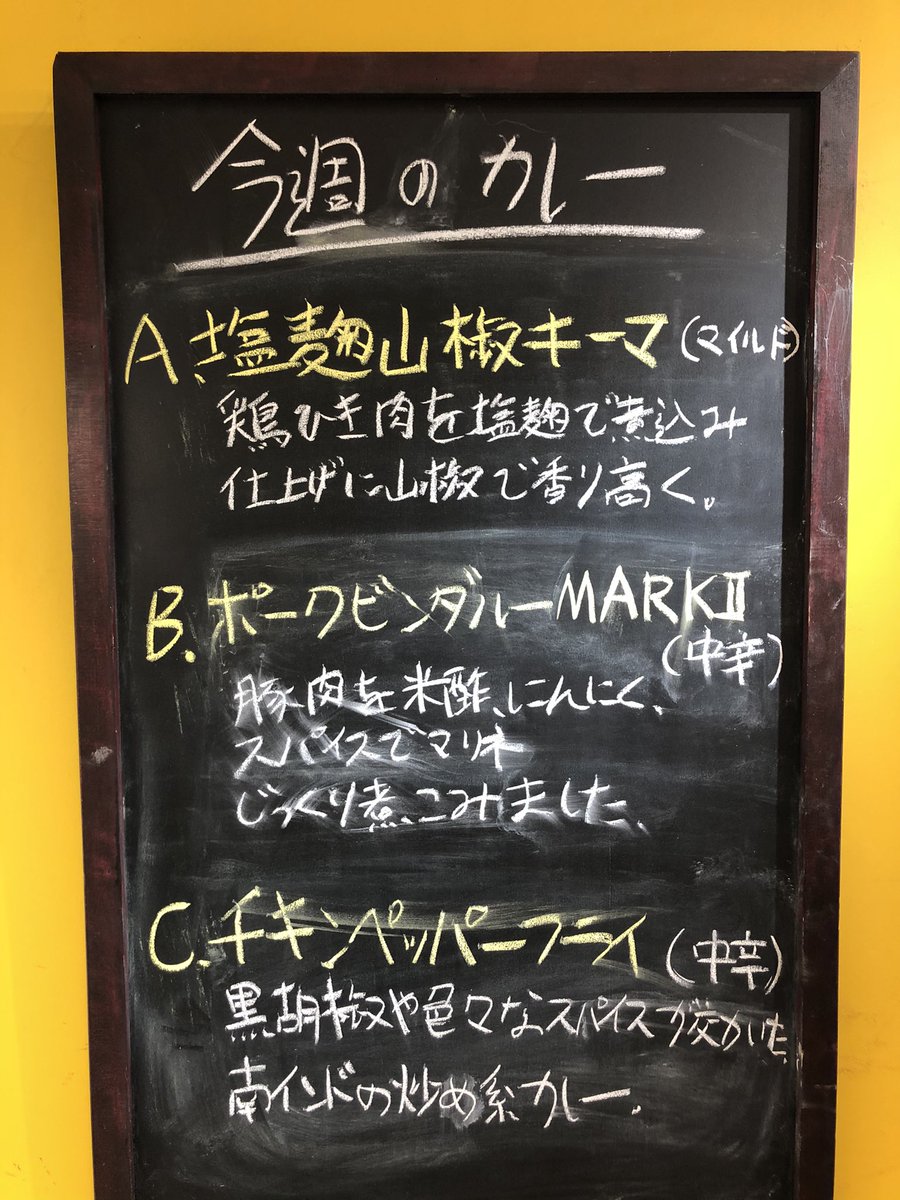 今週のカレー
A.塩麹山椒キーマ(マイルド)
鶏ひき肉を塩麹で煮込み
仕上げに山椒で香り高く。
B.ポークビンダルーMARKⅡ
(中辛)
豚肉を米酢、にんにく、
スパイスでマリネ
じっくり煮こみました、
C.チキンペッパーフライ(中辛)
黒胡椒や色々なスパイスが効いた
南インドの炒め系カレー。